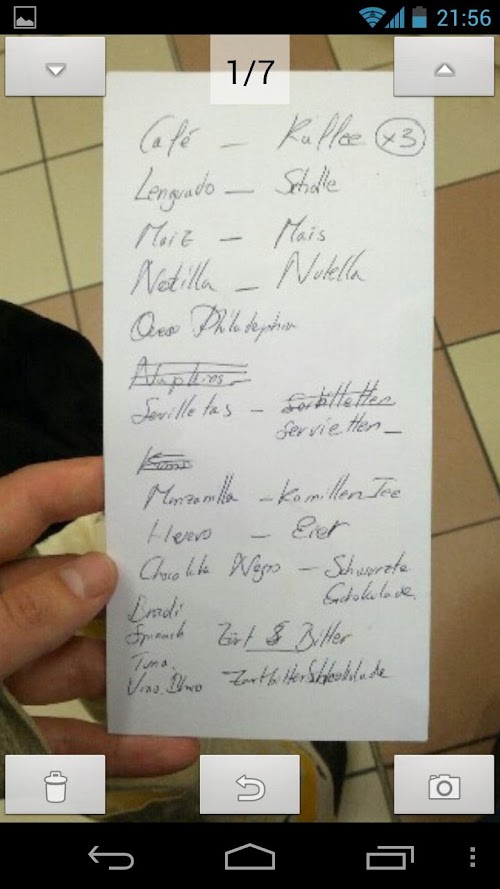 21:56
1/7
Café — Kaffee x3
Lenguado — Scholle
Maiz — Mais
Notilla — Nutella
Queso Philadelphia
Napkins
Sevilletas — Servietten
Manzanilla — Kamillen Tee
Huevo — Eier
Chocolate Negro — Schwarzte
Schokolade
Spinach Zart & Bitter
Tuna.
Vino Zartbitter Schokolade